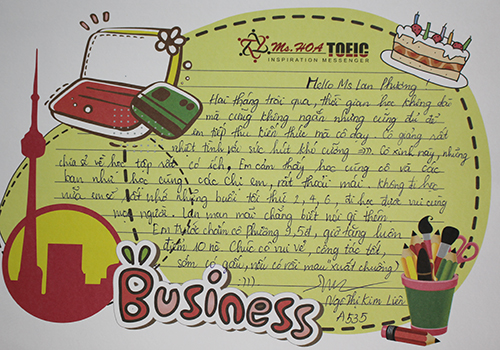 Ms.HOA TOEIC
INSPIRATION MESSENGER
Hello Ms Lan Phương!
Hai tháng trôi qua, thời gian học không dài
mà cũng không ngắn nhưng cũng đủ để
em tiếp thu kiến thức mà cô dạy. Cô giảng rất
nhiệt tình với sức hút khó cưỡng =)) Cô xinh này, những
chia sẻ về học tập rất có ích. Em cảm thấy học cùng cô và các
bạn như học cùng các chị em, rất thoải mái. Không đi học
nữa em sẽ rất nhớ những buổi tối thứ 2, 4, 6, đi học được vui cùng
mọi người. Lan man mãi chẳng biết nói gì thêm.
Em trước chấm cô Phương 9,5đ, giờ tặng luôn
điểm 10 nè. Chúc cô vui vẻ, công tác tốt,
sớm có gấu, nếu có rồi mau xuất chuồng
:)))
Ng Thị Kim Liên
A535
BUSINESS